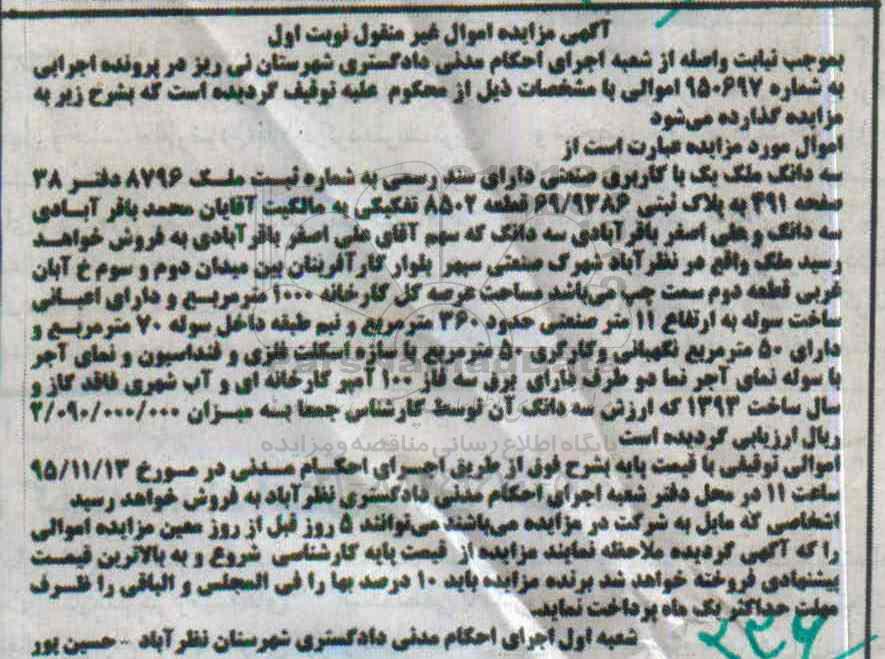 آگهی مزایده اموال غیر منقول نوبت اول
بموجب نیابت واصله از شعبه اجرای احکام مدنی دادگستری شهرستان نی ریز در پرونده اجرایی
به شماره ۹۵۰۶۹۷ اموالی با مشخصات ذیل از محکوم علیه توقیف گردیده است که بشرح زیر به
مزایده گذارده می‌شود
اموال مورد مزایده عبارت است از
سه دانگ ملک یک با کاربری صنعتی دارای سند رسمی به شماره ثبت ملک ۸۷۹۶ دفتر ۳۸
صفحه ۴۹۱ به پلاک ثبتی ۶۹/۹۳۸۶ قطعه ۸۵۰۲ تفکیکی به مالکیت آقایان محمد باقر آبادی
سه دانگ و علی اصغر باقرآبادی سه دانگ که سهم آقای علی اصغر باقرآبادی به فروش خواهد
رسید ملک واقع در نظرآباد شهرک صنعتی سپهر بلوار کارآفرینان بین میدان دوم و سوم خ آبان
غربی قطعه دوم سمت چپ می‌باشد مساحت عرصه کل کارخانه ۱۰۰۰ مترمربع و دارای اعیانی
ساخت سوله به ارتفاع ۱۱ متر صنعتی حدود ۳۶۰ مترمربع و نیم طبقه داخل سوله ۷۰ مترمربع و
دارای ۵۰ مترمربع نگهبانی وکارگری ۵۰ مترمربع با سازه اسکلت فلزی و فنداسیون و نمای آجر
با سوله نمای آجر نما دو طرف دارای برق سه فاز ۱۰۰ آمپر کارخانه ای و آب شهری فاقد گاز و
سال ساخت ۱۳۹۳ که ارزش سه دانگ آن توسط کارشناس جمعا به میزان ۲/۰۹۰/۰۰۰/۰۰۰
ریال ارزیابی گردیده است
پایگاه اطلاع رسانی مناقصه و مزایده
اموالی توقیفی با قیمت پایه بشرح فوق از طریق اجرای احکام مدنی در مورخ ۹۵/۱۱/۱۳
ساعت ۱۱ در محل دفتر شعبه اجرای احکام مدنی دادگستری نظرآباد به فروش خواهد رسید
اشخاصی که مایل به شرکت در مزایده می‌باشند می‌توانند ۵ روز قبل از روز معین مزایده اموالی
را که آگهی گردیده ملاحظه نمایند مزایده از قیمت پایه کارشناسی شروع و به بالاترین قیمت
پیشنهادی فروخته خواهد شد برنده مزایده باید ۱۰ درصد بها را فی المجلس و الباقی را ظرف
مهلت حداکثر یک ماه پرداخت نماید.
شعبه اول اجرای احکام مدنی دادگستری شهرستان نظرآباد - حسین پور